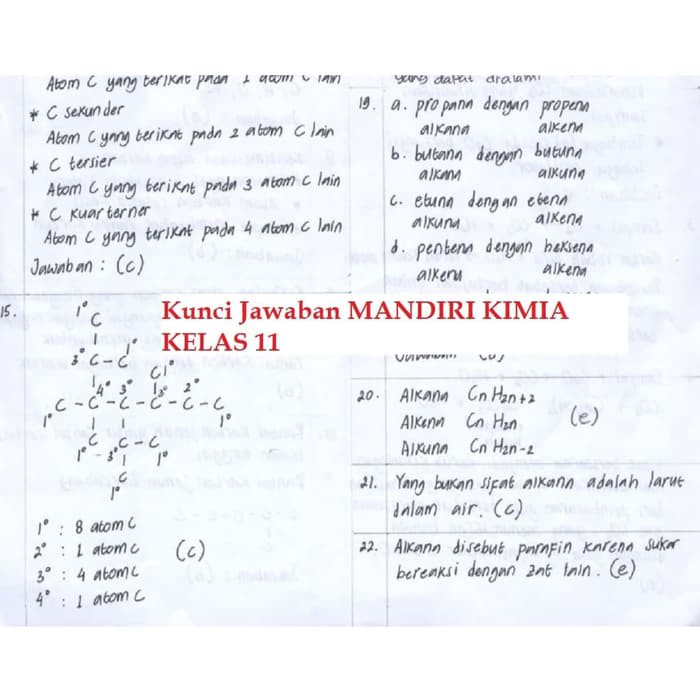 Atom C yang terikat pada 1 atom C lain
* C sekunder
Atom C yang terikat pada 2 atom C lain
* C tersier
Atom C yang terikat pada 3 atom C lain
* C kuarterner
Atom C yang terikat pada 4 atom C lain
Jawaban : (c)
15.
1°
C
3° C - C 1°
C 1°
4° 3° 3° 2°
C - C - C - C - C - C
1° 1°
C C - C
1° - 3° 1°
C
1°
1° : 8 atom C
2° : 1 atom C (c)
3° : 4 atom C
4° : 1 atom C
yang dapat dialami
19. a. propana dengan propena
alkana alkena
b. butana dengan butuna
alkana alkuna
c. etuna dengan etena
alkuna alkena
d. pentena dengan heksena
alkena alkena
Kunci Jawaban MANDIRI KIMIA
KELAS 11
20. Alkana Cn H2n+2
Alkena Cn H2n (e)
Alkuna Cn H2n-2
21. Yang bukan sifat alkana adalah larut
dalam air. (c)
22. Alkana disebut parafin karena sukar
bereaksi dengan zat lain. (e)